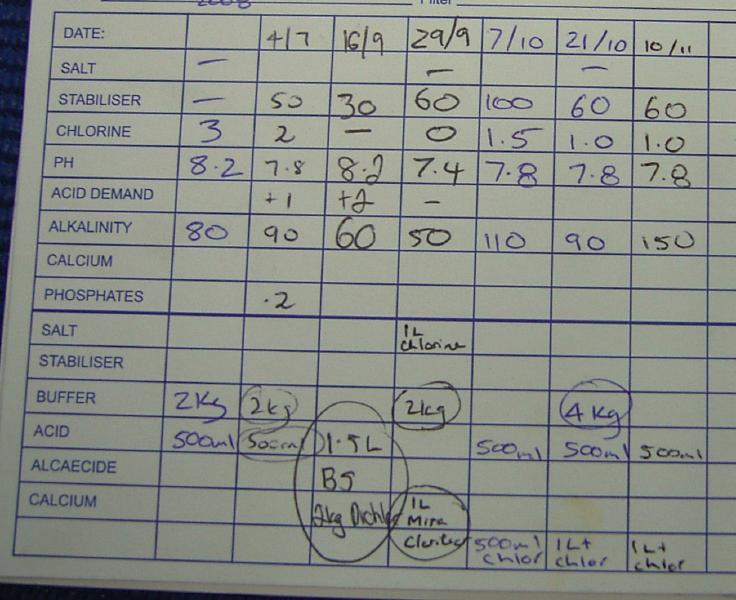 2008 Filter
DATE: 4/7 16/9 29/9 7/10 21/10 10/11
SALT — — —
STABILISER — 50 30 60 100 60 60
CHLORINE 3 2 — 0 1.5 1.0 1.0
PH 8.2 7.8 8.2 7.4 7.8 7.8 7.8
ACID DEMAND +1 +2 –
ALKALINITY 80 90 60 50 110 90 150
CALCIUM
PHOSPHATES .2
SALT 1L
chlorine
STABILISER
BUFFER 2Kg 2kg 2kg 4kg
ACID 500ml 500ml 1.5L 500ml 500ml 500ml
ALCAECIDE B5
CALCIUM 2kg 1L
Mira
500ml 1L+ 1L+
chlor chlor chlor